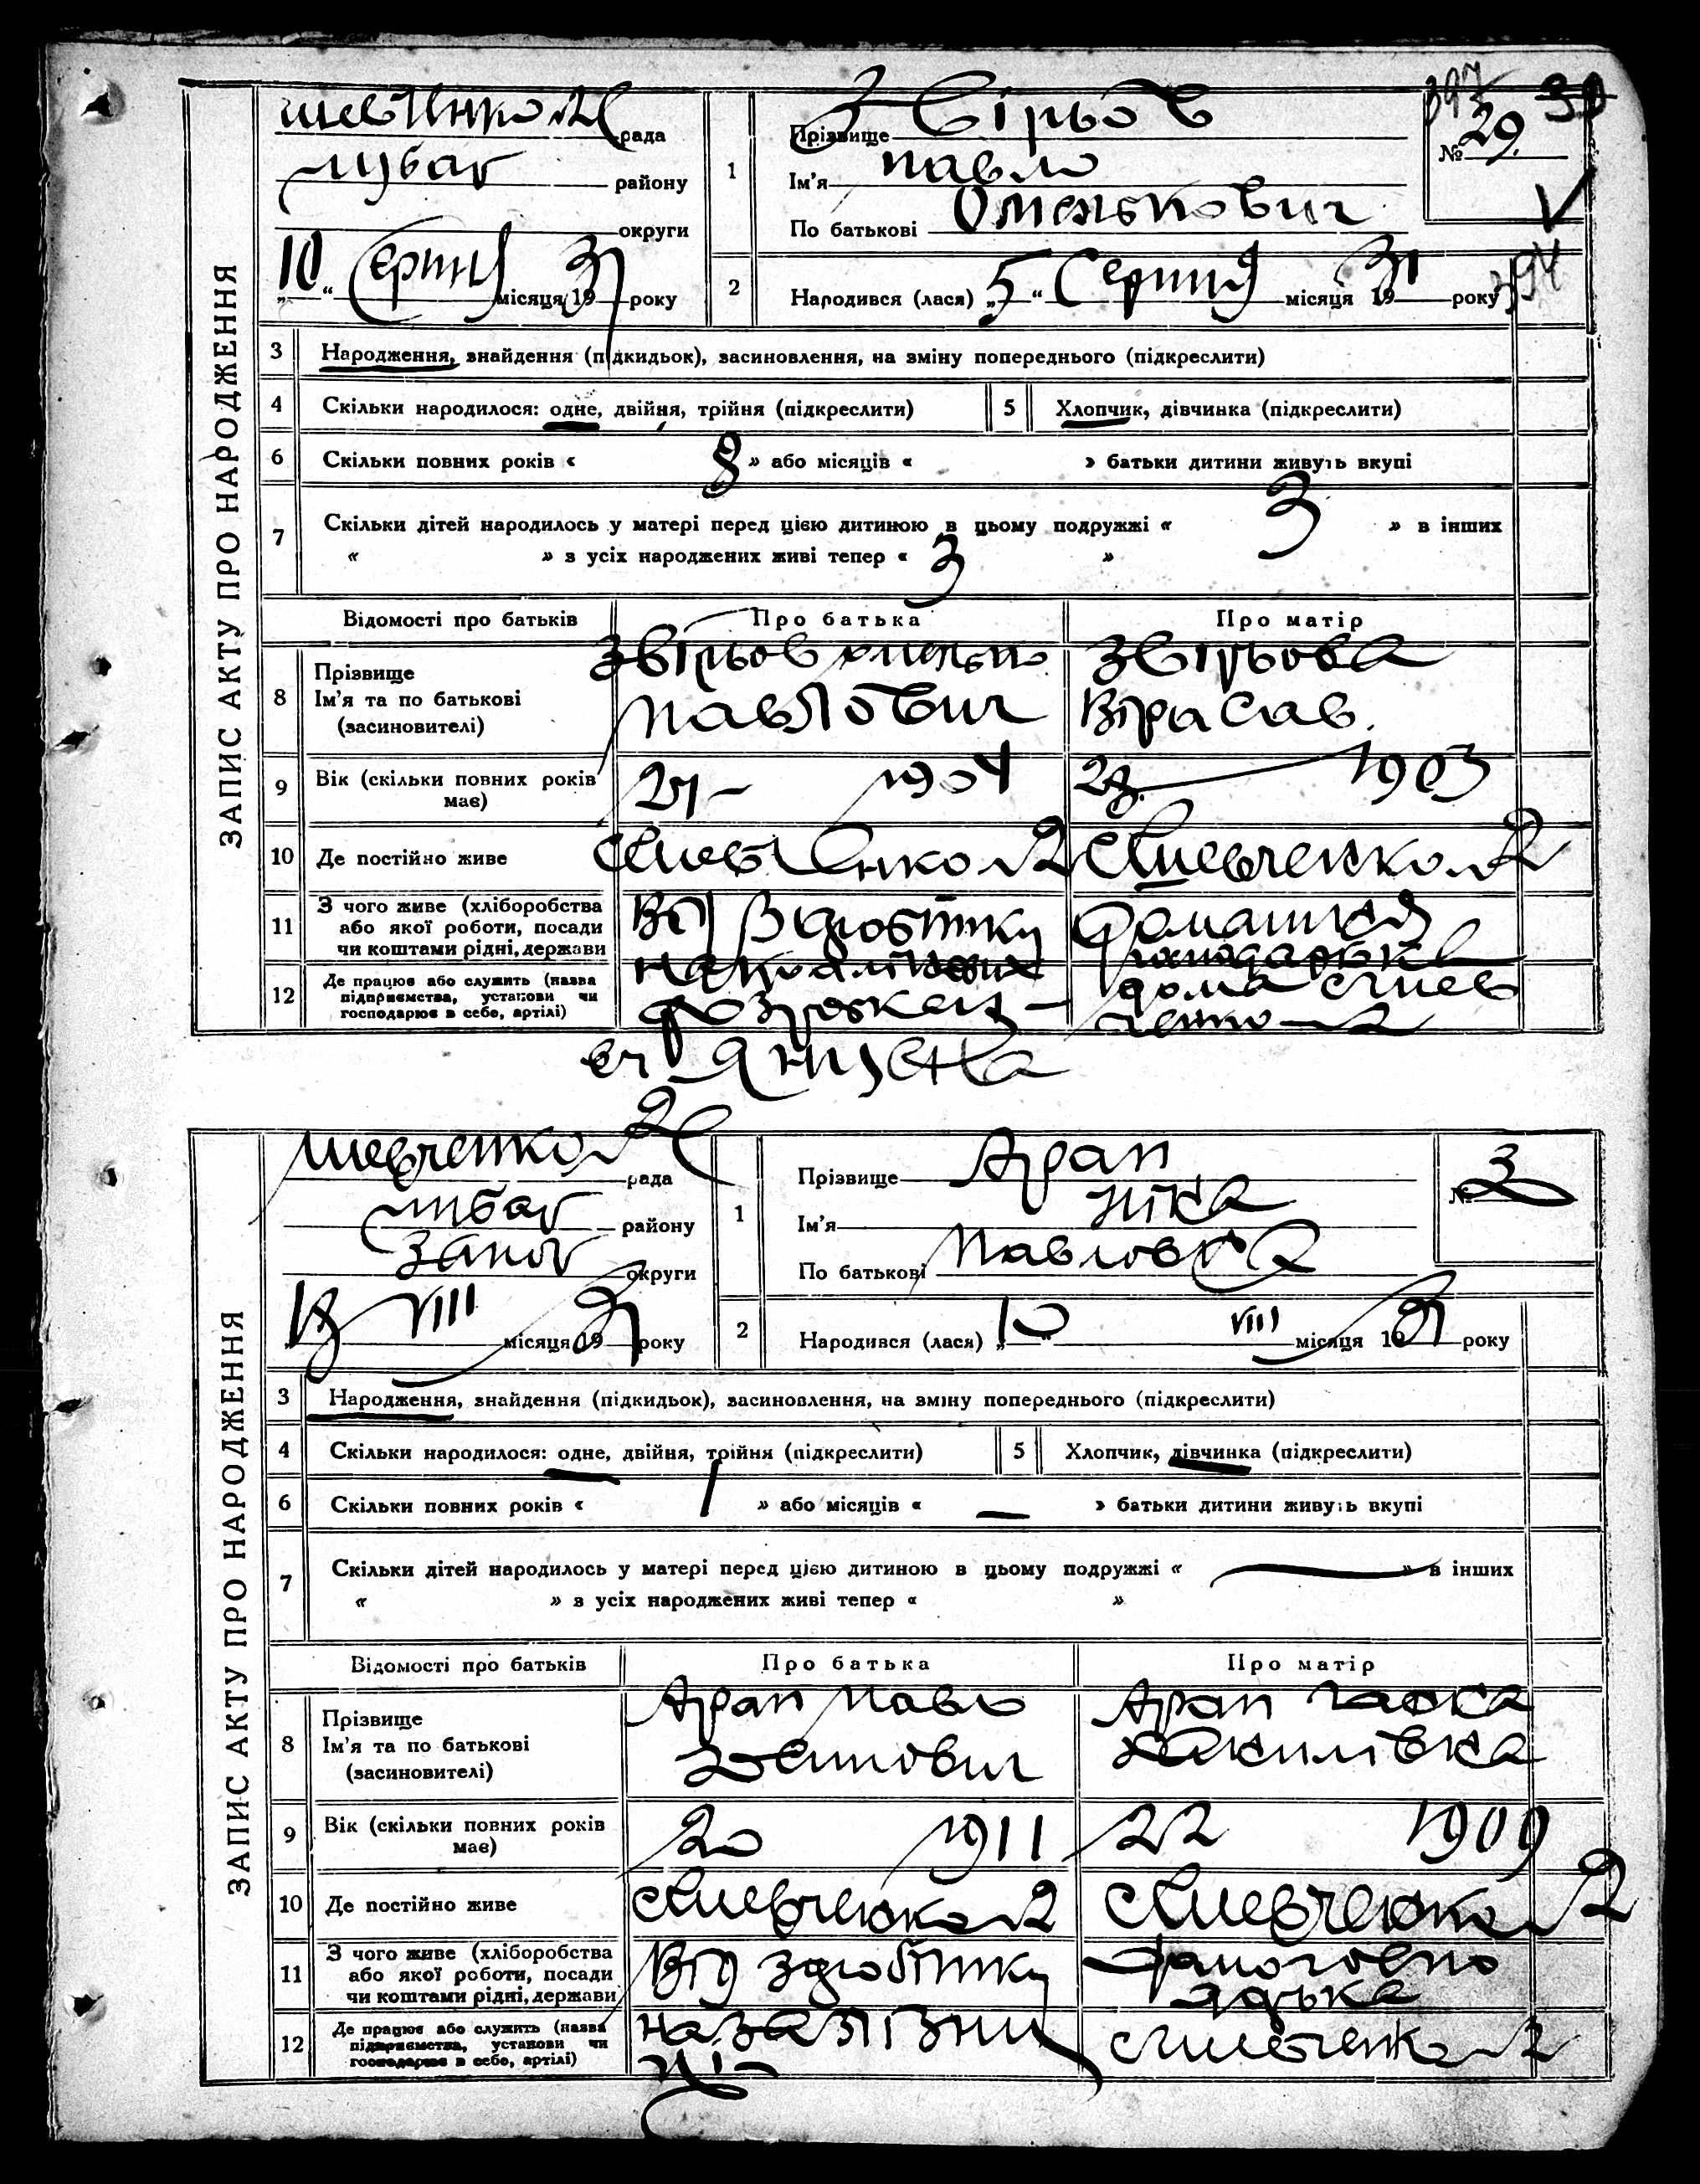 ЗАПИС АКТУ ПРО НАРОДЖЕННЯ
397
30
Шевченко №2 рада
району
округи
„10“ Серпня місяця 1931 року
1
Прізвище Звірьов
Ім'я Павло
По батькові Омелькович
№ 29.
394
2
Народився (лася) „5“ Серпня місяця 1931 року
3 Народження, знайдення (підкидьок), засиновлення, на зміну попереднього (підкреслити)
4 Скільки народилося: одне, двійня, трійня (підкреслити)
5 Хлопчик, дівчинка (підкреслити)
6 Скільки повних років « 8 » або місяців « » батьки дитини живуть вкупі
7 Скільки дітей народилось у матері перед цією дитиною в цьому подружжі « 3 » в інших
« » з усіх народжених живі тепер « 3 »
Відомості про батьків Про батька Про матір
8 Прізвище
Ім'я та по батькові
(засиновителі)
Звірьов Омелько
Павлович
Звірьова
Віра Сав.
9 Вік (скільки повних років має)
27 – 1904
28. 1903
10 Де постійно живе
Шевченко №2
Шевченко №2
11 З чого живе (хліборобства
або якої роботи, посади
чи коштами рідні, держави
Від заробітку
Домашня
12 Де працює або служить (назва
підприємства, установи чи
господарює в себе, артілі)
дома Шев
ченко №2
ЗАПИС АКТУ ПРО НАРОДЖЕННЯ
Шевченко №2 рада
району
Запор округи
18 VIII місяця 1931 року
1
Прізвище Арап
Ім'я Ніка
По батькові Павловна
№ 3
2
Народився (лася) „10“ VIII місяця 1931 року
3 Народження, знайдення (підкидьок), засиновлення, на зміну попереднього (підкреслити)
4 Скільки народилося: одне, двійня, трійня (підкреслити)
5 Хлопчик, дівчинка (підкреслити)
6 Скільки повних років « 1 » або місяців « — » батьки дитини живуть вкупі
7 Скільки дітей народилось у матері перед цією дитиною в цьому подружжі « — » в інших
« » з усіх народжених живі тепер « »
Відомості про батьків Про батька Про матір
8 Прізвище
Ім'я та по батькові
(засиновителі)
Арап Павло
Арап
9 Вік (скільки повних років має)
20 1911
22 1909
10 Де постійно живе
Шевченко №2
Шевченко №2
11 З чого живе (хліборобства
або якої роботи, посади
чи коштами рідні, держави
Від заробітку
12 Де працює або служить (назва
підприємства, установи чи
господарює в себе, артілі)
на залізни
ці
Шевченко №2